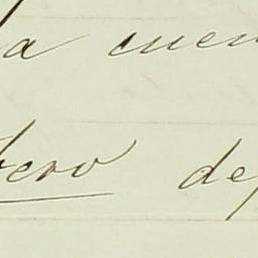 la cuen
bero de